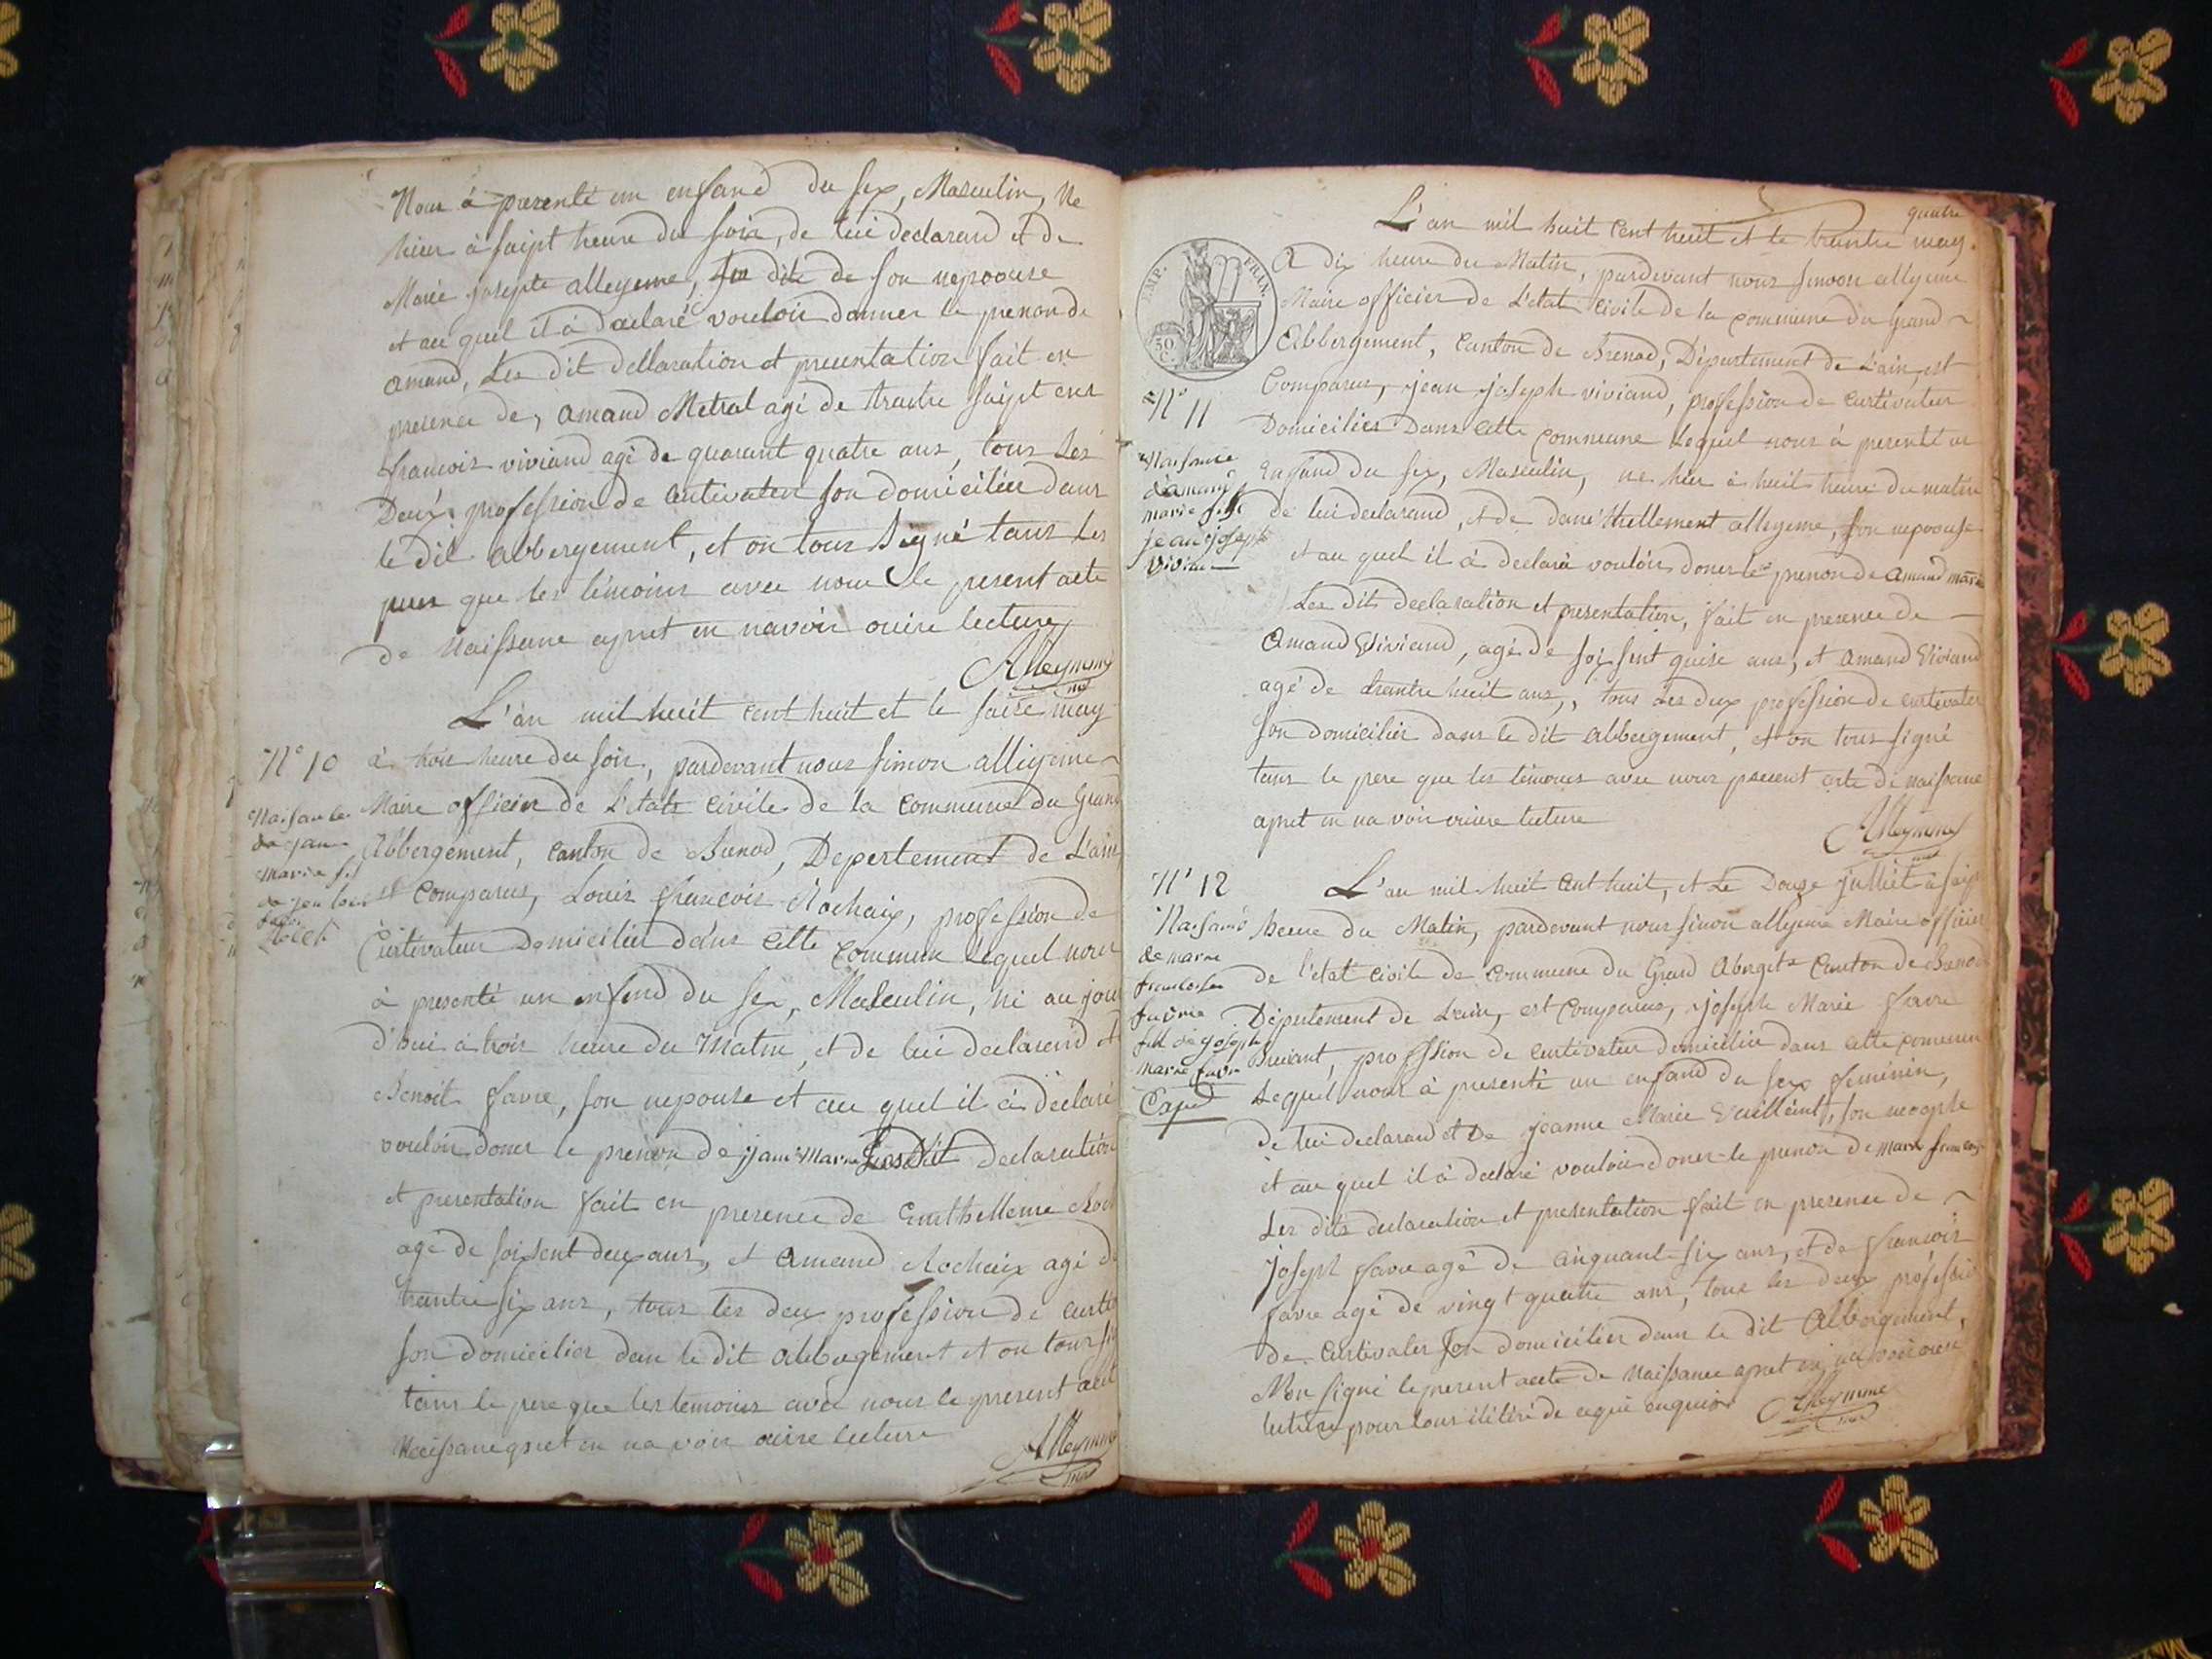 Nous à presenté un enfand du sex, Masculin, Ne
hier à saipt heure du soir, de lui declarand et de
Marie josepte alleyeme, fu dite de son nepoouse
et au quel il à declaré vouloir donner le prenon de
amand, Les dit dellaration et presentation fait en
presence de, amand Metral agé de trante saipt ens
francois viviand agé de quarant quatre ans, tous les
Deux profession de Cultivateu son domicilier dans
le dit abbergement, et on tous signé tans les
peres que les témoins avec nous le present acte
de Naissane apret en navoir ouire lecture
Alleymme
L'an mil huit cent huit et le saise may
N° 10 à trois heure du soir, pardevant nous simon alligeme
Maire officier de L'etate Civile de la Commune du Grand
Abbergement, Canton de Brenod, Depertement de L'ain
est Comparus, Louis francois Rochaix, profession de
Cultivateur Domicilier dans Cette Commun Lequel nous
à presenté un enfend du sex, Masculin, né au jour
d'hui a trois heure du Matin, et de lui declarend et
Benoit favre, son nepouse et au quel il à declaré
vouloir doner le prenon de jjane Marie Les Dit declaration
et presentation fait en presence de
agé de soixsent deux ans, et amand Rochaix agé d
trantre six ans, tous les deux profession de Curti
son domicilier dan le dit abbergement et on tous si
tans le pere que les temoins avec nous le present act
Naissane apret en na voir ouire lecture
Alleymme
Naisance
de jan
Marie fil
de jan louis
quatre
L'an mil huit Cent huit et le trantre may.
A dix heure du Matin, pardevant nous simon allyeme
Maire officier de L'etat Civile de la Commune du grand
Abbergement, Canton de Brenod, Departement de L'ain, est
Comparus, jean joseph viviand, profession de Curtivateur
Domicilier Dans Cette Commune Lequel nous à presenté un
enfand du sex, Masculin, ne hier à huit heure du matin
de lui declarand, et de alleyeme, son nepoouse
et au quel il à declaré vouloir doner le prenon de amand marie
Les dits declaration et presentation, fait en presence de
Amand Viviand, agé de soixsent quise ans, et amand Viviand
agé de trantre huit ans,, tous les deux profession de Curtivater
son domicilier dans le dit abbergement, et on tous signé
tans le pere que les témoins avec nous present acte de naissane
apret en na voir ouire lecture
Alleymme
IMP. FRAN.
50 C.
N° 11
Naissance
d'amand
marie fils
jean joseph
Vivian
N° 12 L'an mil huit Cent huit, et Le Douze julliet à saip
heure du Matin, pardevant nous simon allyeme Maire officier
de l'etat Civile de Commune du Grand Abergets Canton de Brenod
Departement de L'ain, est Comparus, joseph Marie favre
Breviant, profession de Curtivateur domicilier dans Cette Commune
Lequel nous à presenté un enfand du sex feminin,
de lui declarand et De jeanne Marie Vuilliant, son
et au quel il à declaré vouloir doner le prenon de marie francoise
Les dits declaration et presentation fait en presence de
joseph favre agé de cinquante six ans, et de francois
favre agé de vingt quatre ans, tous les deux profession
de Curtivater son domicilier dans le dit Abbergement,
signé le present acte de Naissance apret en na voir ouire
lecture pour tous de ce quit enquis
Alleymme
Naisance
de marie
francoise
favre
fille de joseph
Marie favre